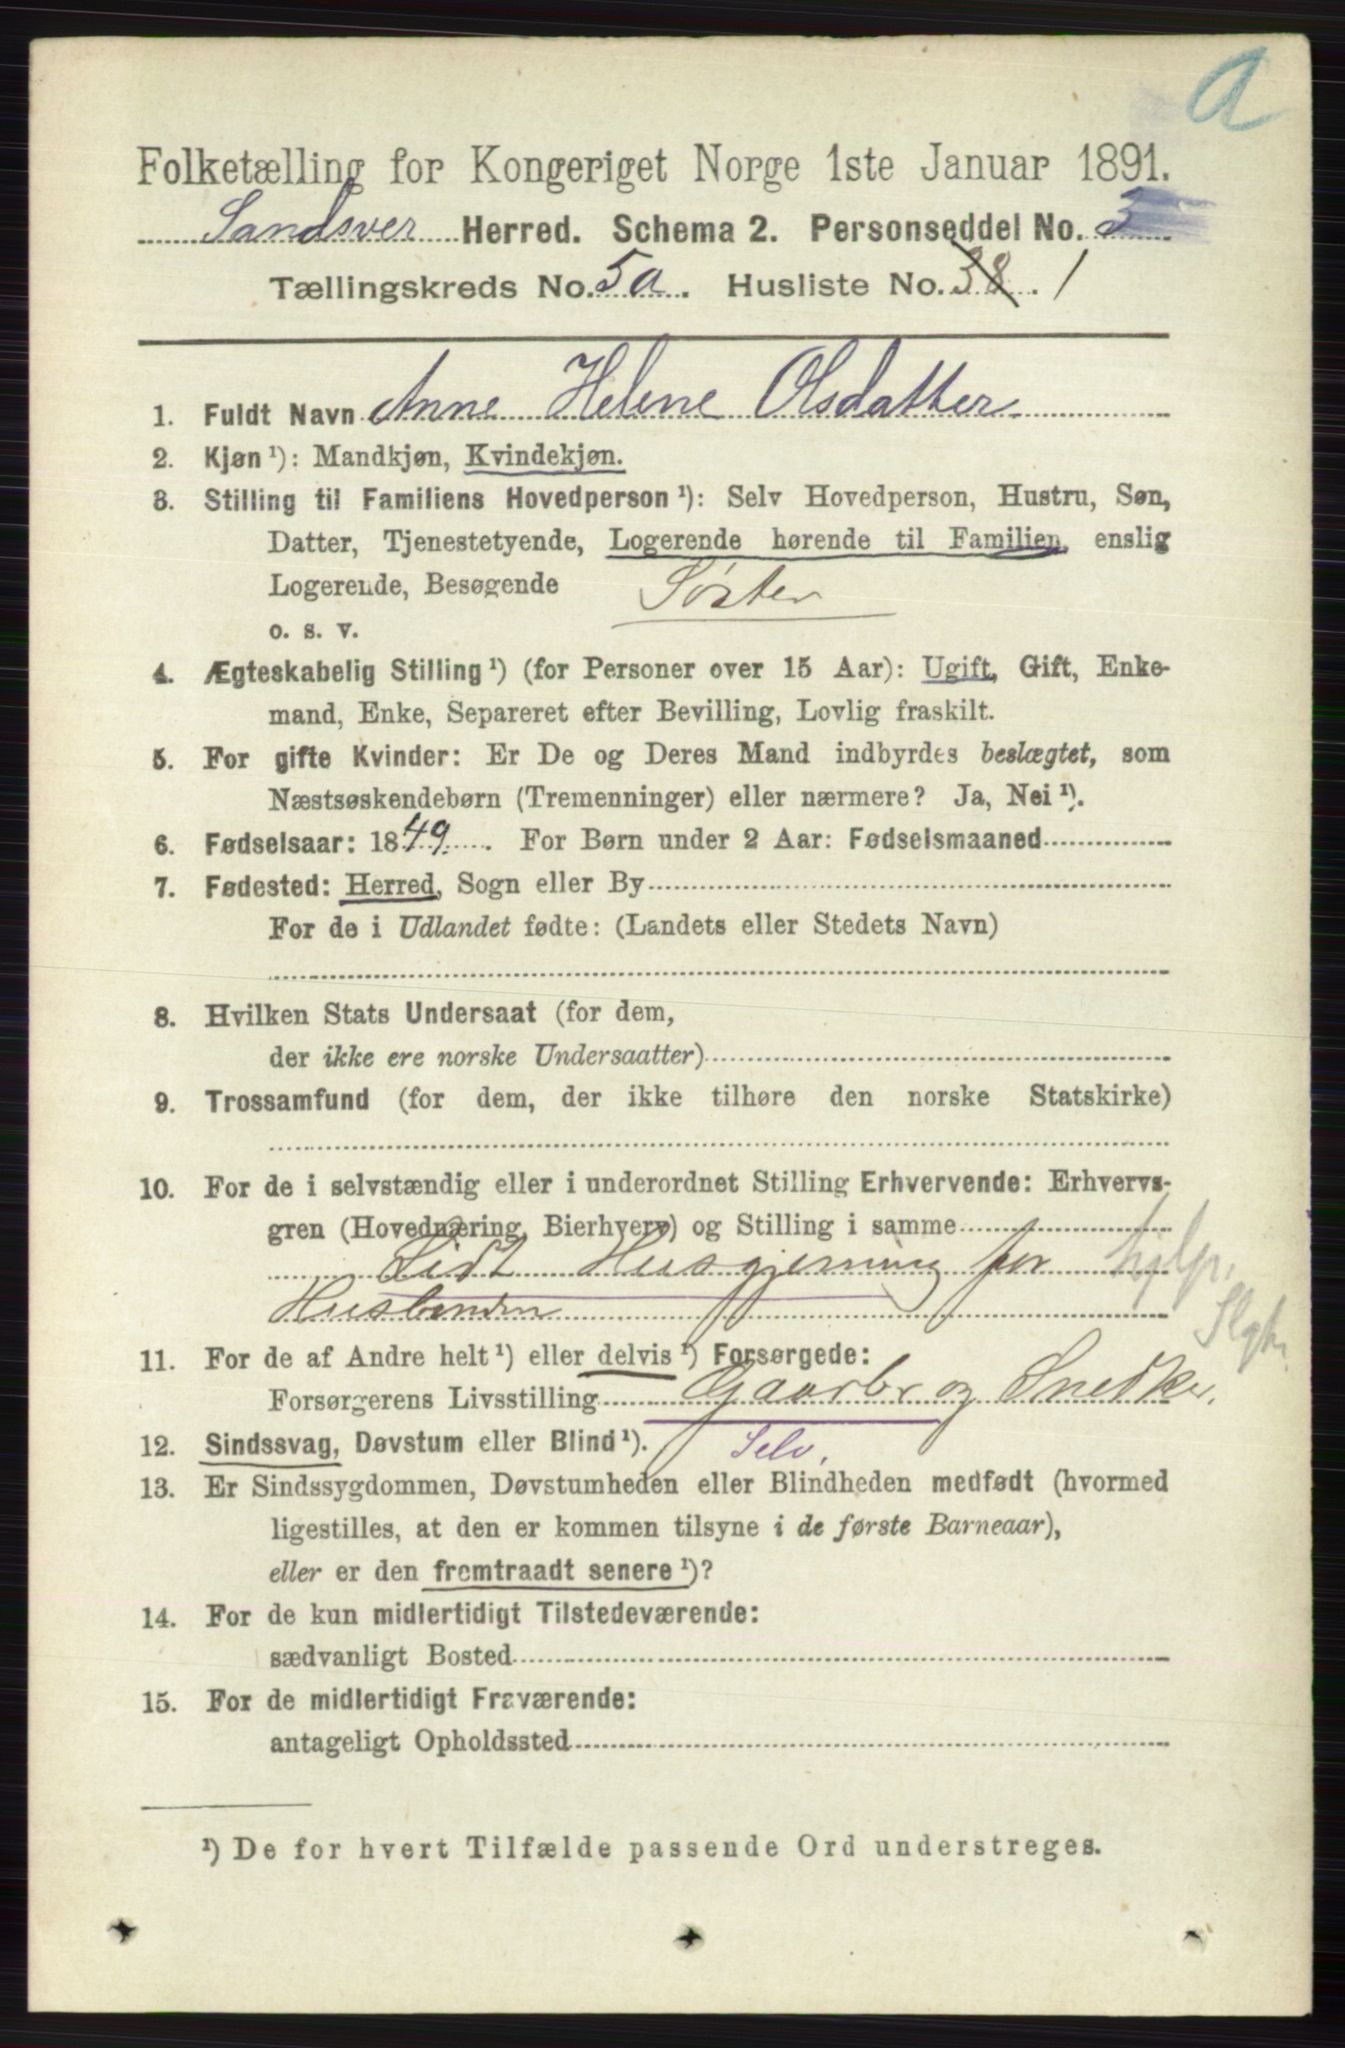 a
Folketælling for Kongeriget Norge 1ste Januar 1891.
Sandsver Herred. Schema 2. Personseddel No. 3
Tællingskreds No. 5a. Husliste No. 38. 1
1. Fuldt Navn Anne Helene Olsdatter
2. Kjøn ¹): Mandkjøn, Kvindekjøn.
3. Stilling til Familiens Hovedperson ¹): Selv Hovedperson, Hustru, Søn,
Datter, Tjenestetyende, Logerende hørende til Familien, enslig
Logerende, Besøgende Søster
o. s. v.
4. Ægteskabelig Stilling ¹) (for Personer over 15 Aar): Ugift, Gift, Enke-
mand, Enke, Separeret efter Bevilling, Lovlig fraskilt.
5. For gifte Kvinder: Er De og Deres Mand indbyrdes beslægtet, som
Næstsøskendebørn (Tremenninger) eller nærmere? Ja, Nei ¹).
6. Fødselsaar: 1849. For Børn under 2 Aar: Fødselsmaaned
7. Fødested: Herred, Sogn eller By
For de i Udlandet fødte: (Landets eller Stedets Navn)
8. Hvilken Stats Undersaat (for dem,
der ikke ere norske Undersaatter)
9. Trossamfund (for dem, der ikke tilhøre den norske Statskirke)
10. For de i selvstændig eller i underordnet Stilling Erhvervende: Erhvervs-
gren (Hovednæring, Bierhverv) og Stilling i samme
Lidt Husgjerning for hjelp.
Husbonden Slgtn.
11. For de af Andre helt ¹) eller delvis ¹) Forsørgede:
Forsørgerens Livsstilling Gaardbr og Snedker.
12. Sindssvag, Døvstum eller Blind ¹). Selv.
13. Er Sindssygdommen, Døvstumheden eller Blindheden medfødt (hvormed
ligestilles, at den er kommen tilsyne i de første Barneaar),
eller er den fremtraadt senere ¹)?
14. For de kun midlertidigt Tilstedeværende:
sædvanligt Bosted
15. For de midlertidigt Fraværende:
antageligt Opholdssted
¹) De for hvert Tilfælde passende Ord understreges.